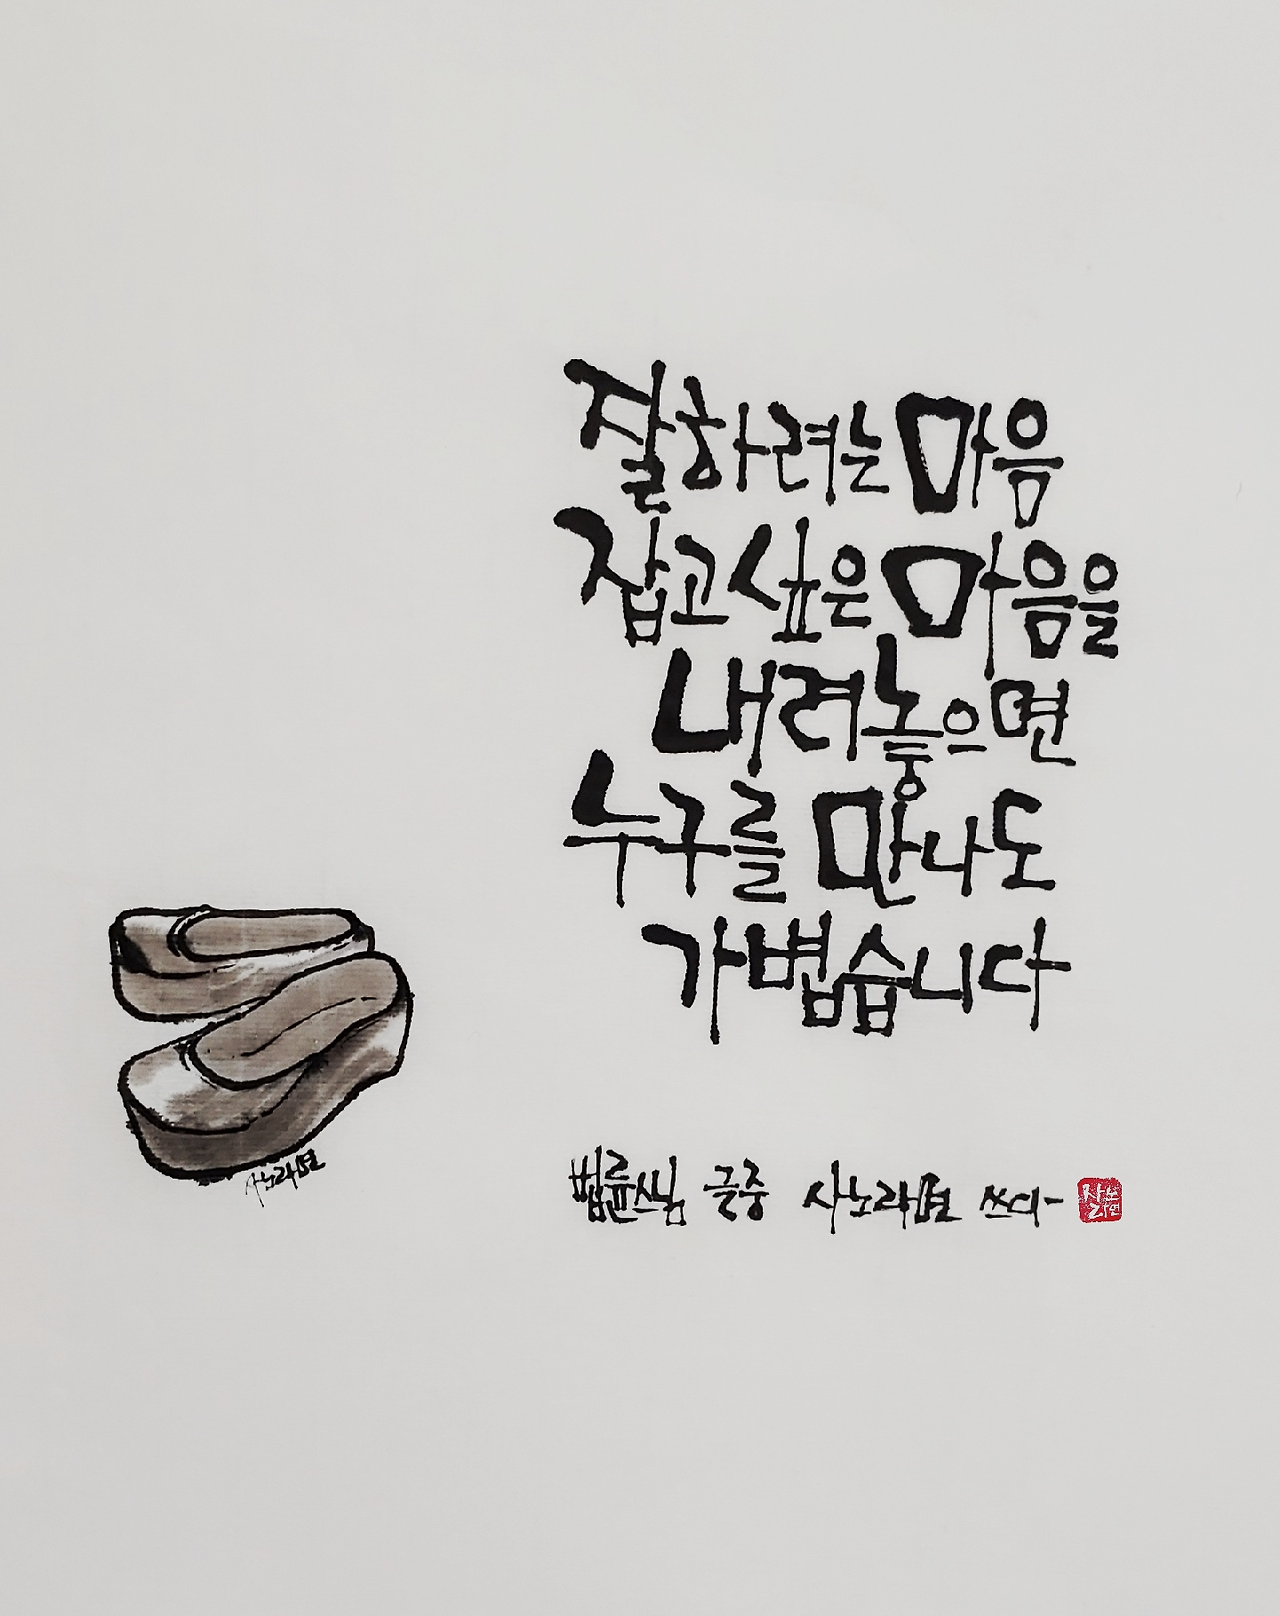 잘하려는 마음
잡고 싶은 마음을
내려놓으면
누구를 만나도
가볍습니다
사노라면
법륜스님 글중 사노라면 쓰다
사노라면